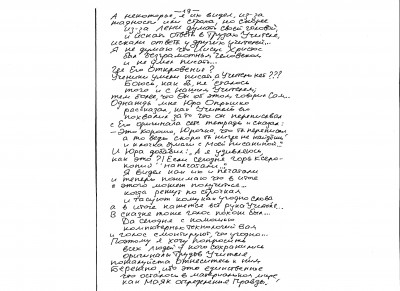 — 19 —
А некоторые, я их видел, из-за
жадности или страха, но скорее
из-за лени думать своей головой,
и искал ответ в Трудах Учителя,
искали ответы у других учителей...
Я не думаю что Иисус Христос
был безграмотным человеком
и не умел писать...
Где Его Откровение?
Ученики умели писать а Учитель нет???
Боюсь, как бы не сталось
того и с нашим Учителем,
тем более, что Он об этом говорил Сам.
Однажды мне Юра
рассказал, как Учитель Его
похвалил за то что он переписывал
с Его оригинала себе тетрадь и сказал:
— "Это хорошо, Юрочка, что ты переписал,
а то ведь скоро ты нигде не найдёшь
и клочка бумаги с Моей писаниной."
И Юра добавил: "А я удивлялся,
как это?! Если сегодня горы ксеро-
копий напечатали..."
Я видел как их и печатали
и теперь понимаю что в итоге
с этого может получиться...
когда режут по строчкам
и тасуют кому как угодно слова
а в итоге кажется вы рука Учителя...
В сказке тоже голос похож был...
Да сегодня с помощью
компьютерных технологий Вам
и голос смонтируют, что угодно...
Поэтому я хочу попросить
всех людей у кого сохранились
оригиналы Трудов Учителя,
пожалуйста Отнеситесь к ним
Бережно, ибо это единственное
что осталось в материальном мире,
как МАЯК определения Правды,